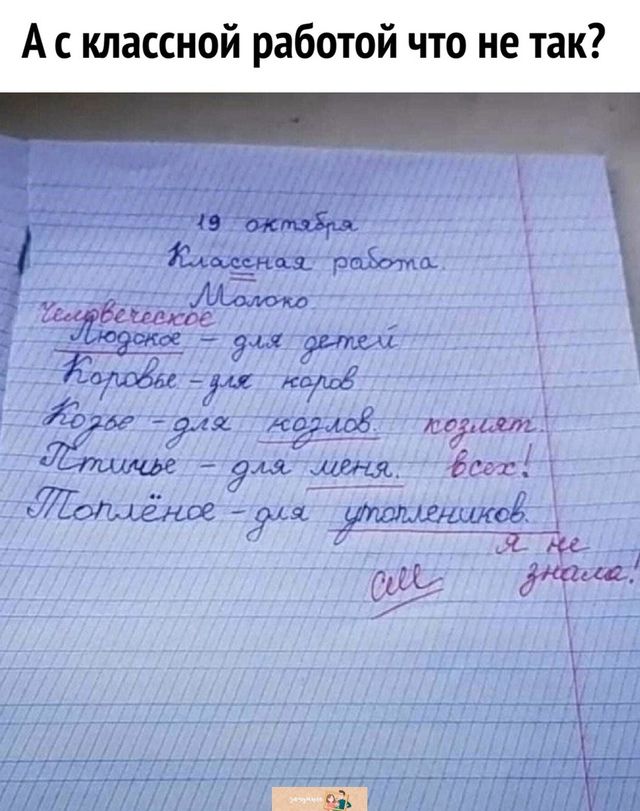 А с классной работой что не так?
19 октября
Классная работа.
Молоко
Человеческое
Людское – для детей
Коровье – для каров
Козье – для козлов. козлят.
Птичье – для меня. всех!
Топлёное – для утоплеников.
я не
см знала!